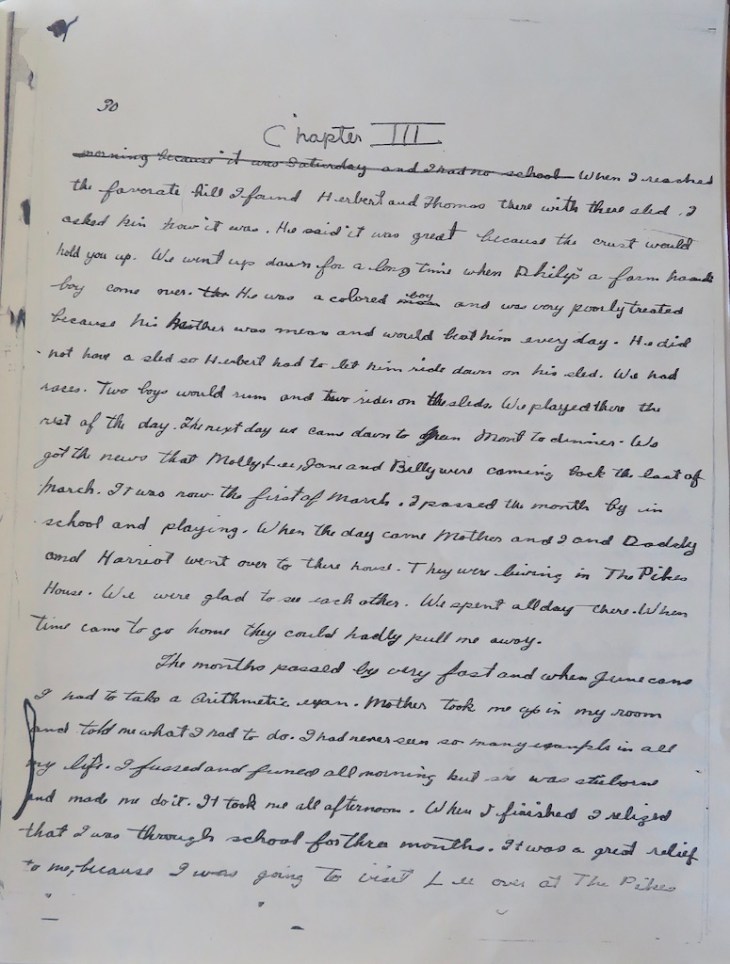 30
Chapter III
morning because it was Saturday and I had no school When I reached
the favorate hill I found Herbert and Thomas there with there sled. I
asked him how it was. He said it was great because the crust would
hold you up. We went up down for a long time when Philip a farm hand
boy come over. He was a colored boy and was very poorly treated
because his was mean and would beat him every day. He did
not have a sled so Herbert had to let him ride down on his sled. We had
races. Two boys would run and two rides on the sleds. We played there the
rest of the day. The next day we came down to Mont to dinner. We
got the news that Molly, Lee, Jane and Billy were coming back the last of
March. It was now the first of March. I passed the month by in
school and playing. When the day came Mother and I and Daddy
and Harriot went over to there house. They were living in The Pikes
House. We were glad to see each other. We spent all day there. When
time came to go home they could hadly pull me away.
The months passed by very fast and when June came
I had to take a Arithmetic exan. Mother took me up in my room
and told me what I had to do. I had never seen so many in all
my life. I fussed and fumed all morning but she was stuborne
and made me do it. It took me all afternoon. When I finished I relized
that I was through school for three months. It was a gret relief
to me, because I was going to visit Lee over at The Pikes